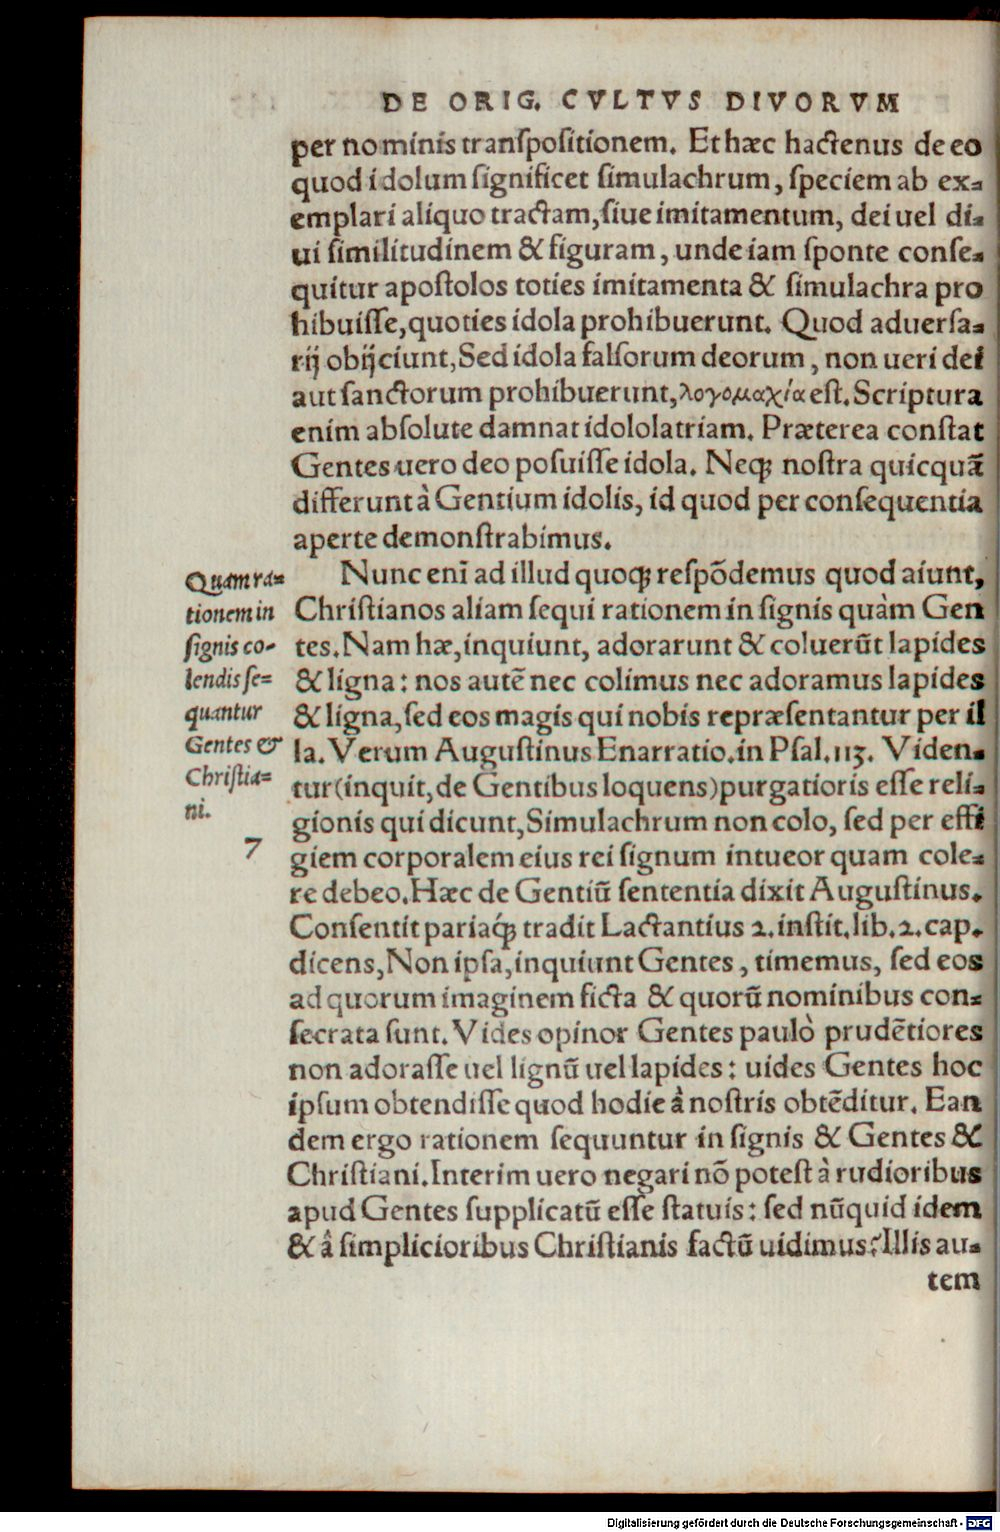 DE ORIG. CVLTVS DIVORVM
per nominis transpositionem. Et hæc hactenus de eo
quod idolum significet simulachrum, speciem ab ex⸗
emplari aliquo tractam, siue imitamentum, dei uel di⸗
ui similitudinem & figuram, unde iam sponte conse⸗
quitur apostolos toties imitamenta & simulachra pro
hibuisse, quoties idola prohibuerunt. Quod aduersa⸗
rij obijciunt, Sed idola falsorum deorum, non ueri dei
aut sanctorum prohibuerunt, λογομαχία est. Scriptura
enim absolute damnat idololatriam. Præterea constat
Gentes uero deo posuisse idola. Neqꝫ nostra quicquã
differunt à Gentium idolis, id quod per consequentia
aperte demonstrabimus.
Nunc enĩ ad illud quoqꝫ respõdemus quod aiunt,
Christianos aliam sequi rationem in signis quàm Gen
tes. Nam hæ, inquiunt, adorarunt & coluerũt lapides
& ligna: nos autẽ nec colimus nec adoramus lapides
& ligna, sed eos magis qui nobis repræsentantur per il
la. Verum Augustinus Enarratio. in Psal. 113. Viden⸗
tur (inquit, de Gentibus loquens) purgatioris esse reli⸗
gionis qui dicunt, Simulachrum non colo, sed per effi
giem corporalem eius rei signum intueor quam cole⸗
re debeo. Hæc de Gentiũ sententia dixit Augustinus.
Consentit pariaq́ꝫ tradit Lactantius 2. instit. lib. 2. cap.
dicens, Non ipsa, inquiunt Gentes, timemus, sed eos
ad quorum imaginem ficta & quorũ nominibus con⸗
secrata sunt. Vides opinor Gentes paulò prudẽtiores
non adorasse uel lignũ uel lapides: uides Gentes hoc
ipsum obtendisse quod hodie à nostris obtẽditur. Ean
dem ergo rationem sequuntur in signis & Gentes &
Christiani. Interim uero negari nõ potest à rudioribus
apud Gentes supplicatũ esse statuis: sed nũquid idem
& à simplicioribus Christianis factũ uidimus? Illis au⸗
tem
Quam ra⸗
tionem in
signis co-
lendis se⸗
quantur
Gentes &
Christia⸗
ni.
7
Digitalisierung gefördert durch die Deutsche Forschungsgemeinschaft - DFG